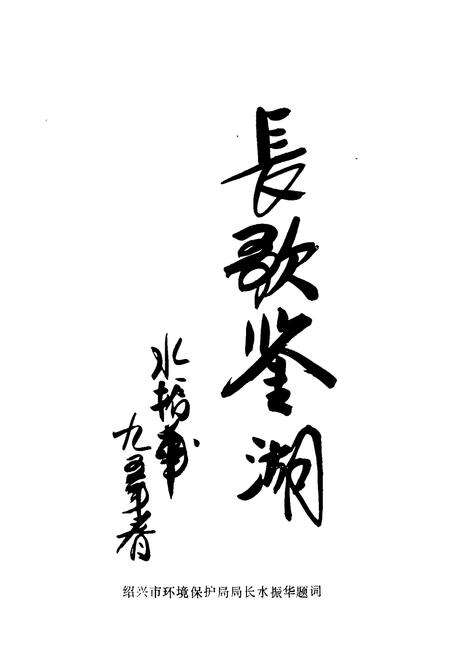 長歌鉴湖
水振華
九五年春
绍兴市环境保护局局长水振华题词